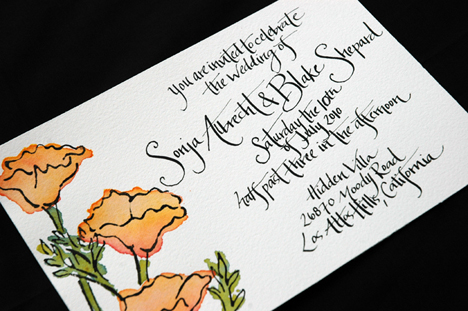 you are invited to celebrate
the wedding of
Sonja Albrecht & Blake Shepard
Saturday the 10th
of July 2010
half past three in the afternoon
Hidden Villa
26870 Moody Road
Los Altos Hills, California